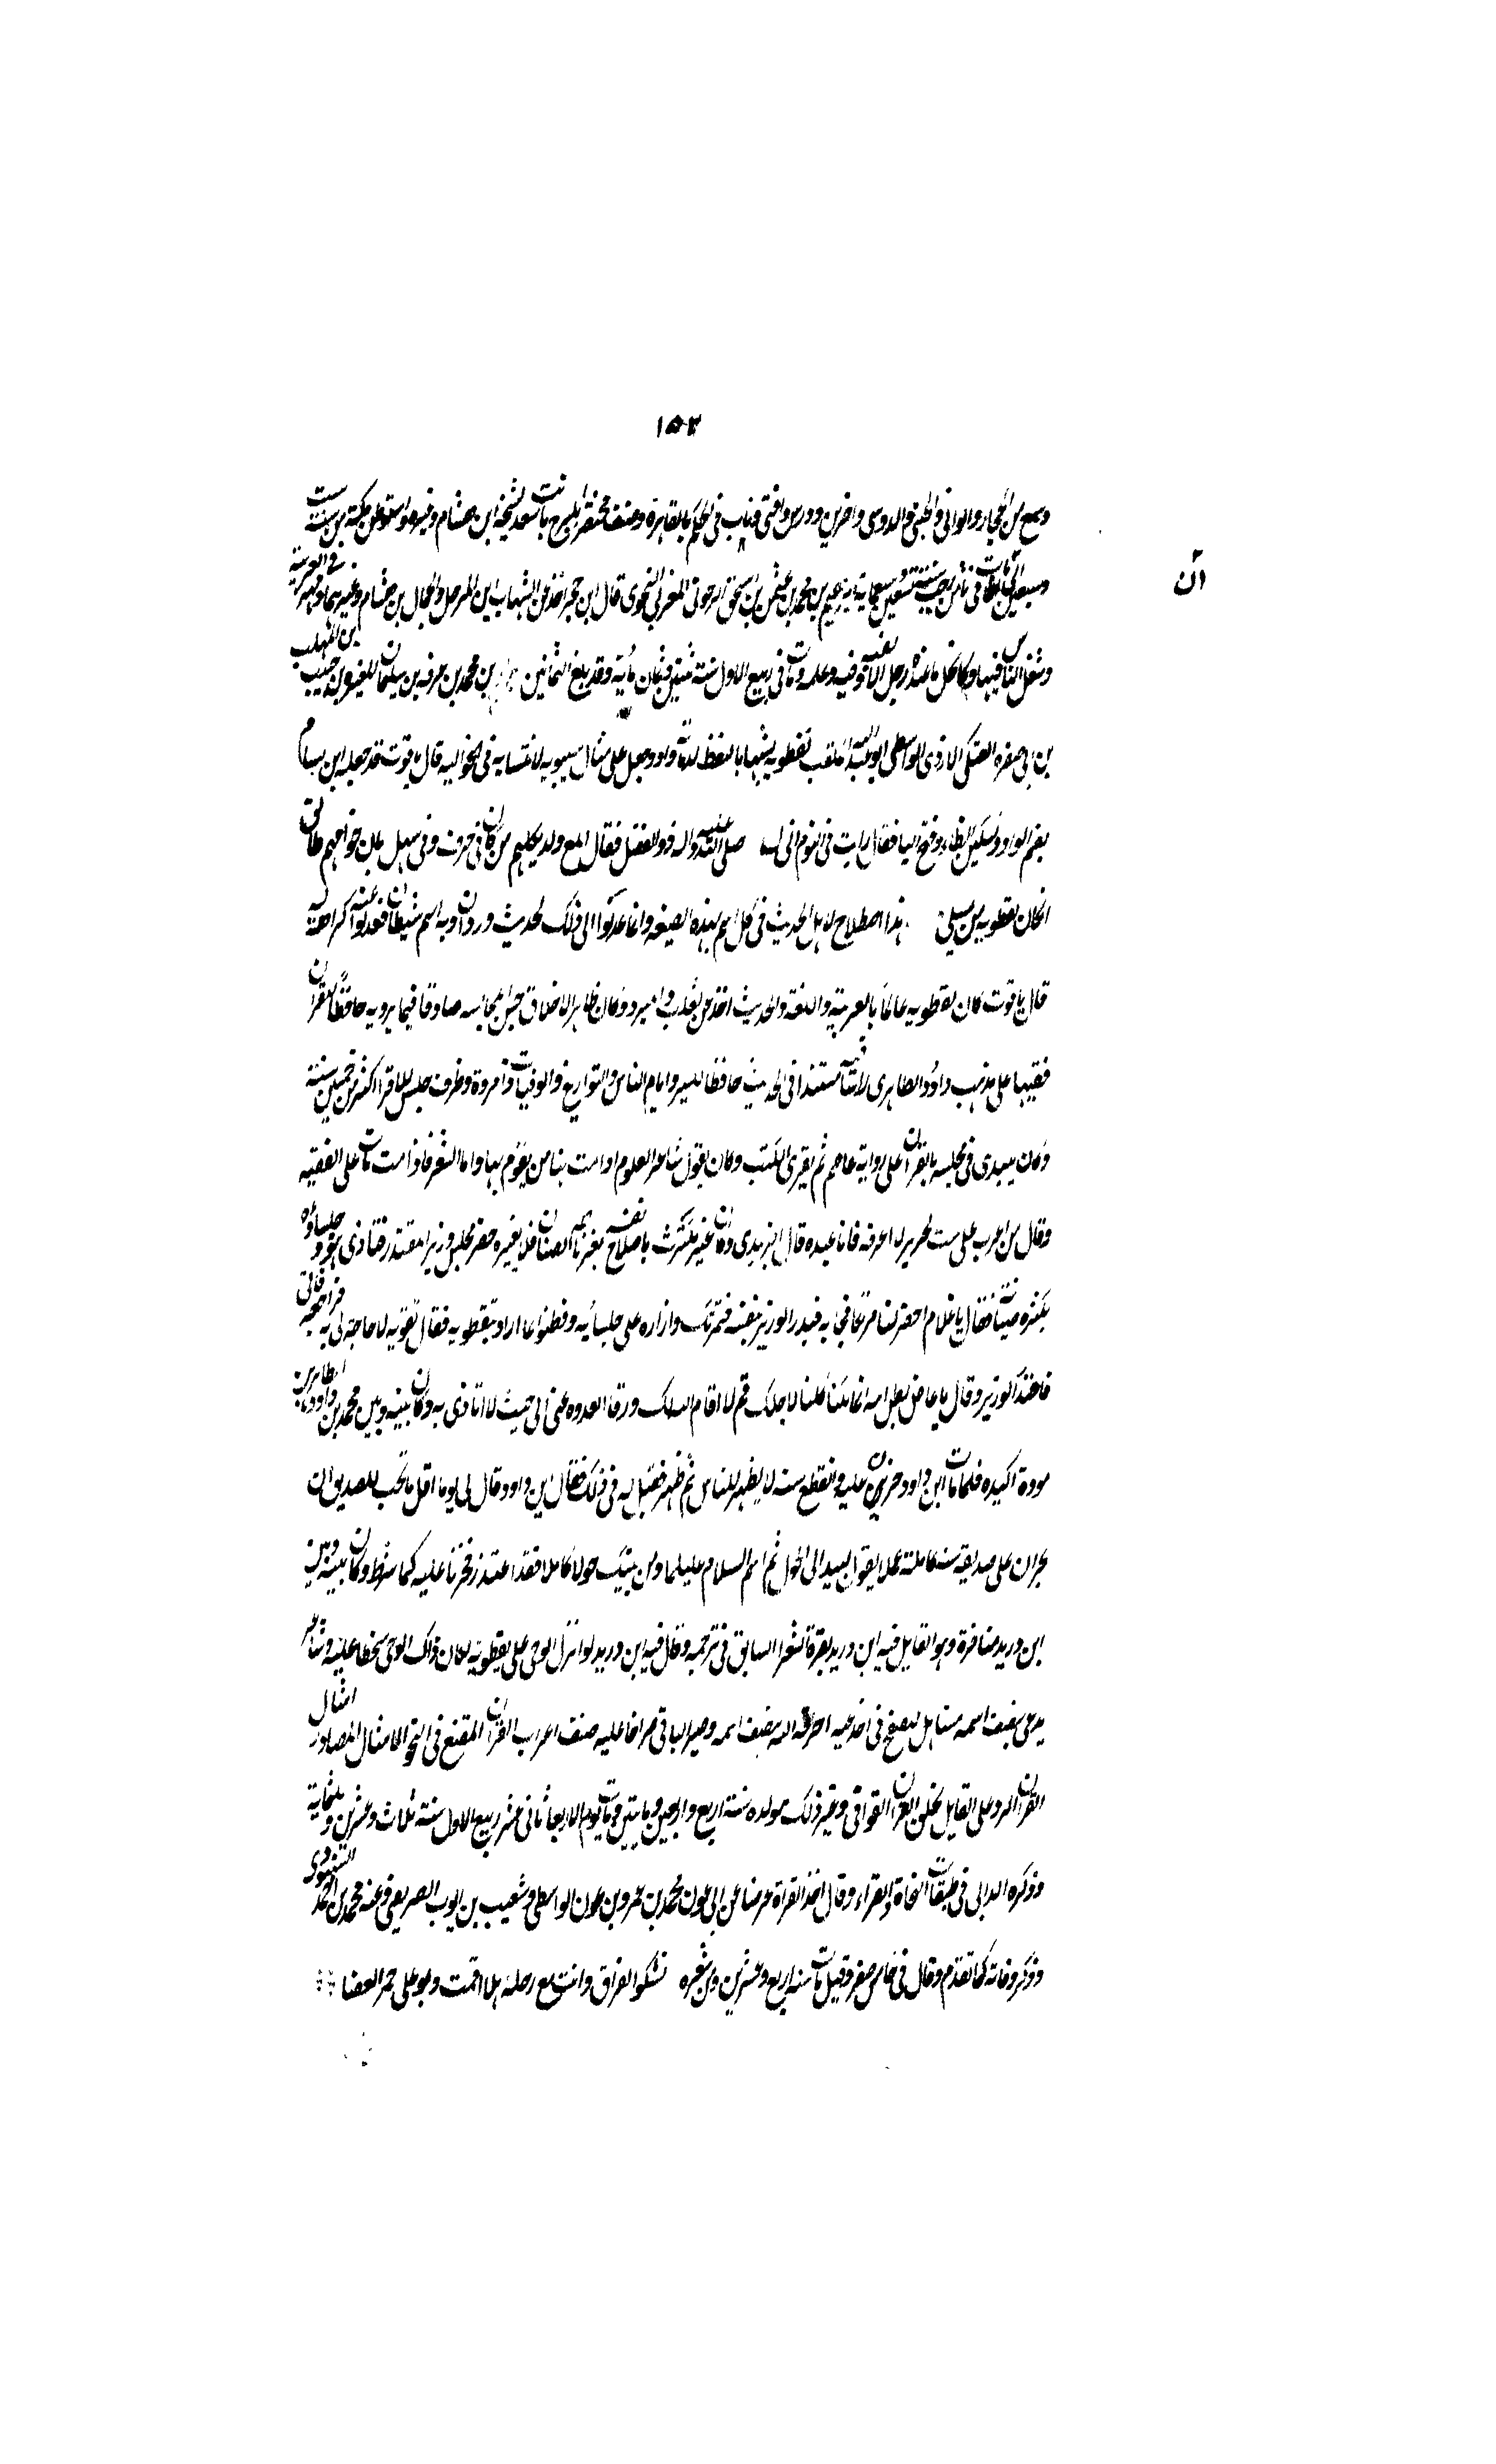 ١٥٢
وسمع من الحجار والوانى والختنى والدبوسى واخرين ودرس وافتى وناب فى الحكم بالقاهرة وصنف مختصر بانت سعاد لشيخه ابن هشام وغيره واستوطن مكة من ست
ان
وسبعين الى ان مات فى ثامن رجب سنة تسعين وسبعماية ابراهيم بن محمد بن عثمن بن اسحق المغربى النحوى قال ابن حجر اخذ عن الشهاب ابن المرحل والجمال بن هشام وغيرهما ومهر فى العربية
وشغل الناس فيها وكان كل ما عنده فيه وعلمه ومات فى ربيع الاول سنة وثمان مأية وقد بلغ الثمانين بن محمد بن عرفه بن سليمان بن المغيره بن حبيب بن المهلب
بن ابى صفره العتكى الازدى الواسطى ابو عبد الله الملقب نفطويه لشبهه بالنفط وجعل على مثال سيبويه لانتسابه فى النحو اليه قال ياقوت قد جعله ابن بسام
بضم الواو وتسكين الطاء وفتح اليا فقال رايت فى النوم ابى صلى الله عليه واله ذو الفضل فقال ابلغ ولدى كلهم من كان فى حزن وفى سهل بان حوا امهم طالق
ان كان نفطويه من نسلى هذا اصطلاح لاهل الحديث فى كل اسم بهذه الصيغه وانما عدلوا الى ذلك لحديث ورد ان ويه اسم شيطان فعدلوا عنه كراهة له
قال ياقوت كان نفطويه عالما بالعربية واللغة والحديث اخذ عن ثعلب والمبرد وكان طاهر الاخلاق حسن المجالسه صادقا فيما يرويه حافظا للقران
فقيها على مذهب داود الظاهرى راسا فيه مسندا فى الحديث حافظا للسير وايام الناس والتواريخ والوفيات ذا مروة وظرف جلس للاقرا اكثر من خمسين سنة
وكان يبتدى فى مجلسه بالقران على رواية عاصم ثم يقرى الكتب وكان يقول سائر العلوم اذا مت هنا من يقوم بها واما الشعر فاذا مت مات على الحقيقه
وقال من اغرب على بيت لجرير لا اعرفه فانا عبده قال الزبيدى وكان غير مكترث باصلاح نفسه يفرط به الصنان فلا يغيره حضر مجلس وزير المقتدر فتاذى هو وجلساؤه
بكثرة صنانه فقال يا غلام احضر لنا مرتكا فجا به فبدا الوزير بنفسه فتمرتك واداره على جلسائه وفطنوا ما اراد بنفطويه فقال نفطويه لا حاجة لى به فراجعه فابى
فاحتد الوزير وقال يا عاض بظر امه انما تمرتكنا كلنا لاجلك قم لا اقام الله لك وزنا ابعدوه عنى الى حيث لا اتاذى به وكان بينه وبين محمد بن داود الظاهرى
مودة اكيده فلما مات ابن داود حزن عليه وانقطع سنه لا يظهر للناس ثم ظهر فقيل له فى ذلك فقال ان ابن داود قال لى يوما اقل ما يجب للصديق ان
يحزن على صديقه سنة كاملة عملا بقول لبيد الى الحول ثم اسم السلام عليكما ومن يبك حولا كاملا فقد اعتذر فحزنا عليه كما شرط وكان بينه وبين
ابن دريد منافرة وهو القايل فيه ابن دريد بقرة الشعر السابق فى ترجمته وقال فيه ابن دريد لو انزل الوحى على نفطويه لكان ذاك الوحى سخطا عليه وشاعر
يدعى بنصف اسمه مستاهل للصفع فى اخدعيه احرقه الله بنصف اسمه وصير الباقى صراخا عليه صنف اعراب القران المقنع فى النحو الامثال المصادر امثال
القران الرد على القايل بخلق القران القوافى وغير ذلك مولده سنة اربع واربعين ومايتين ومات يوم الاربعا ثانى عشر ربيع الاول سنة ثلاث وعشرين وثلثماية
وذكره الدانى فى طبقات النحاة والقراء وقال اخذ القراة عرضا عن ابى عون محمد بن عمرو بن عون الواسطى وشعيب بن ايوب الصريفينى وعنه محمد بن احمد الشنبوذى
وذكر وفاته كما تقدم وقال فى خامس صفر وقيل مات سنه اربع وعشرين ومن شعره تشكو الفراق وانت تزمع رحلة هلا اقمت ولو على جمر الغضا